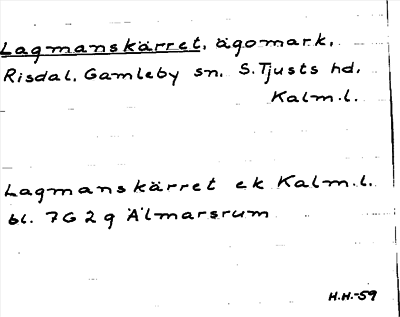 Lagmanskärret, ägomark,
Risdal, Gamleby sn. S. Tjusts hd.
Kalm. l.
Lagmanskärret ek Kalm. l.
bl. 7G 2g Älmarsrum
H.H.-59